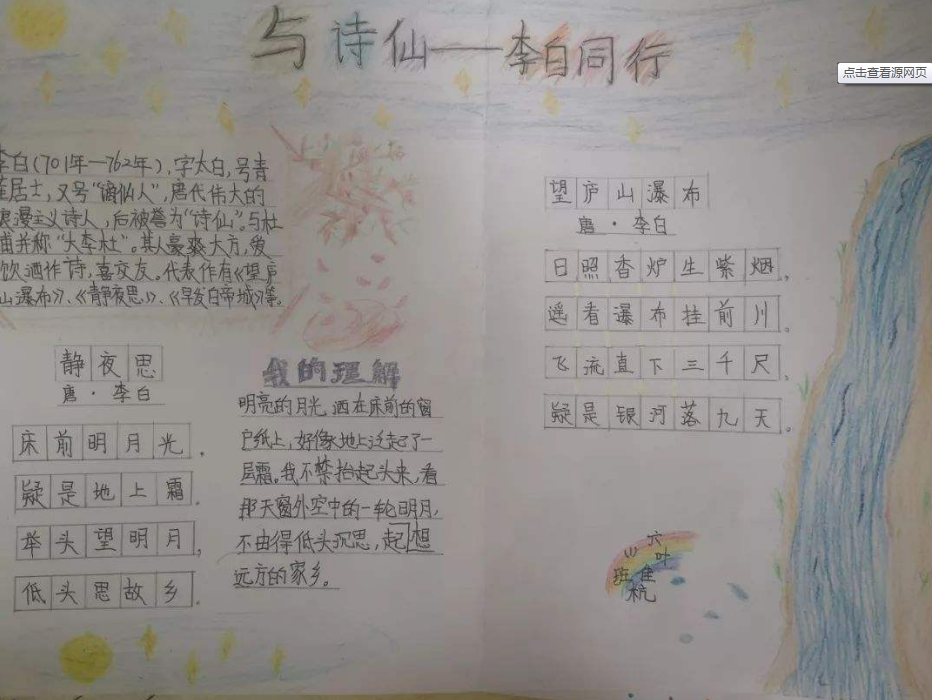 与诗仙——李白同行
点击查看源网页
李白(701年—762年),字太白,号青
莲居士,又号“谪仙人”,唐代伟大的
浪漫主义诗人,后被誉为“诗仙”。与杜
甫并称“大李杜”。其人豪爽大方,爱
饮酒作诗,喜交友。代表作有《望庐
山瀑布》、《静夜思》、《早发白帝城》等。
静夜思
唐·李白
床前明月光,
疑是地上霜。
举头望明月,
低头思故乡。
我的理解
明亮的月光洒在床前的窗
户纸上,好像地上泛起了一
层霜。我不禁抬起头来,看
那天窗外空中的一轮明月,
不由得低头沉思,起想
远方的家乡。
望庐山瀑布
唐·李白
日照香炉生紫烟,
遥看瀑布挂前川。
飞流直下三千尺,
疑是银河落九天。
六
三
叶
班
佳
杭